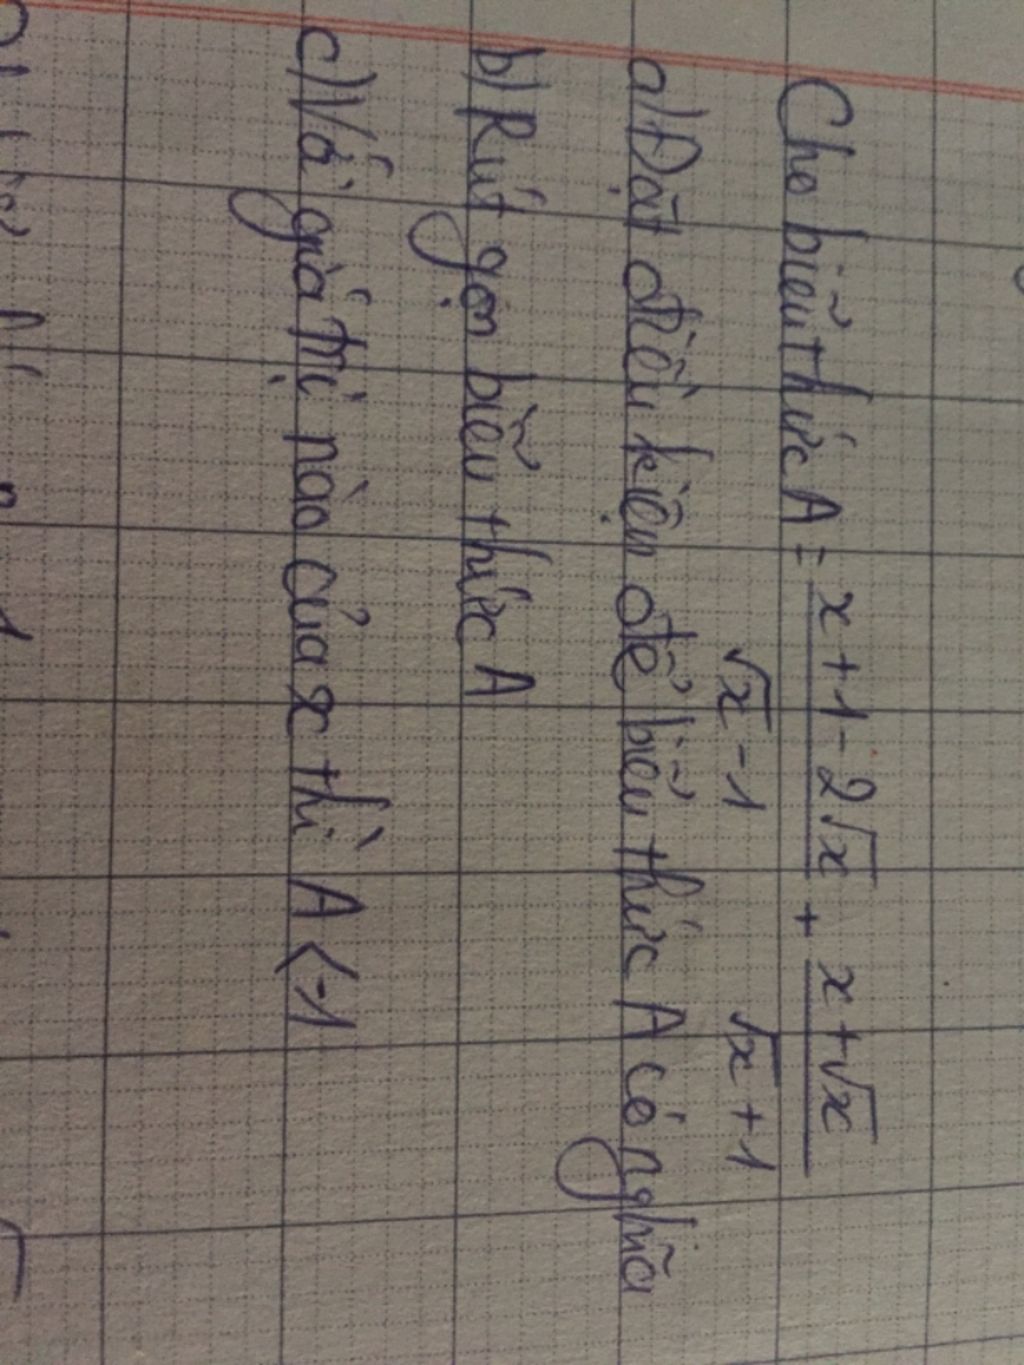 Cho biểu thức A = x + 1 - 2√x + x + √x
√x - 1 √x + 1
a) Đặt điều kiện để biểu thức A có nghĩa
b) Rút gọn biểu thức A
c) Với giá trị nào của x thì A < -1